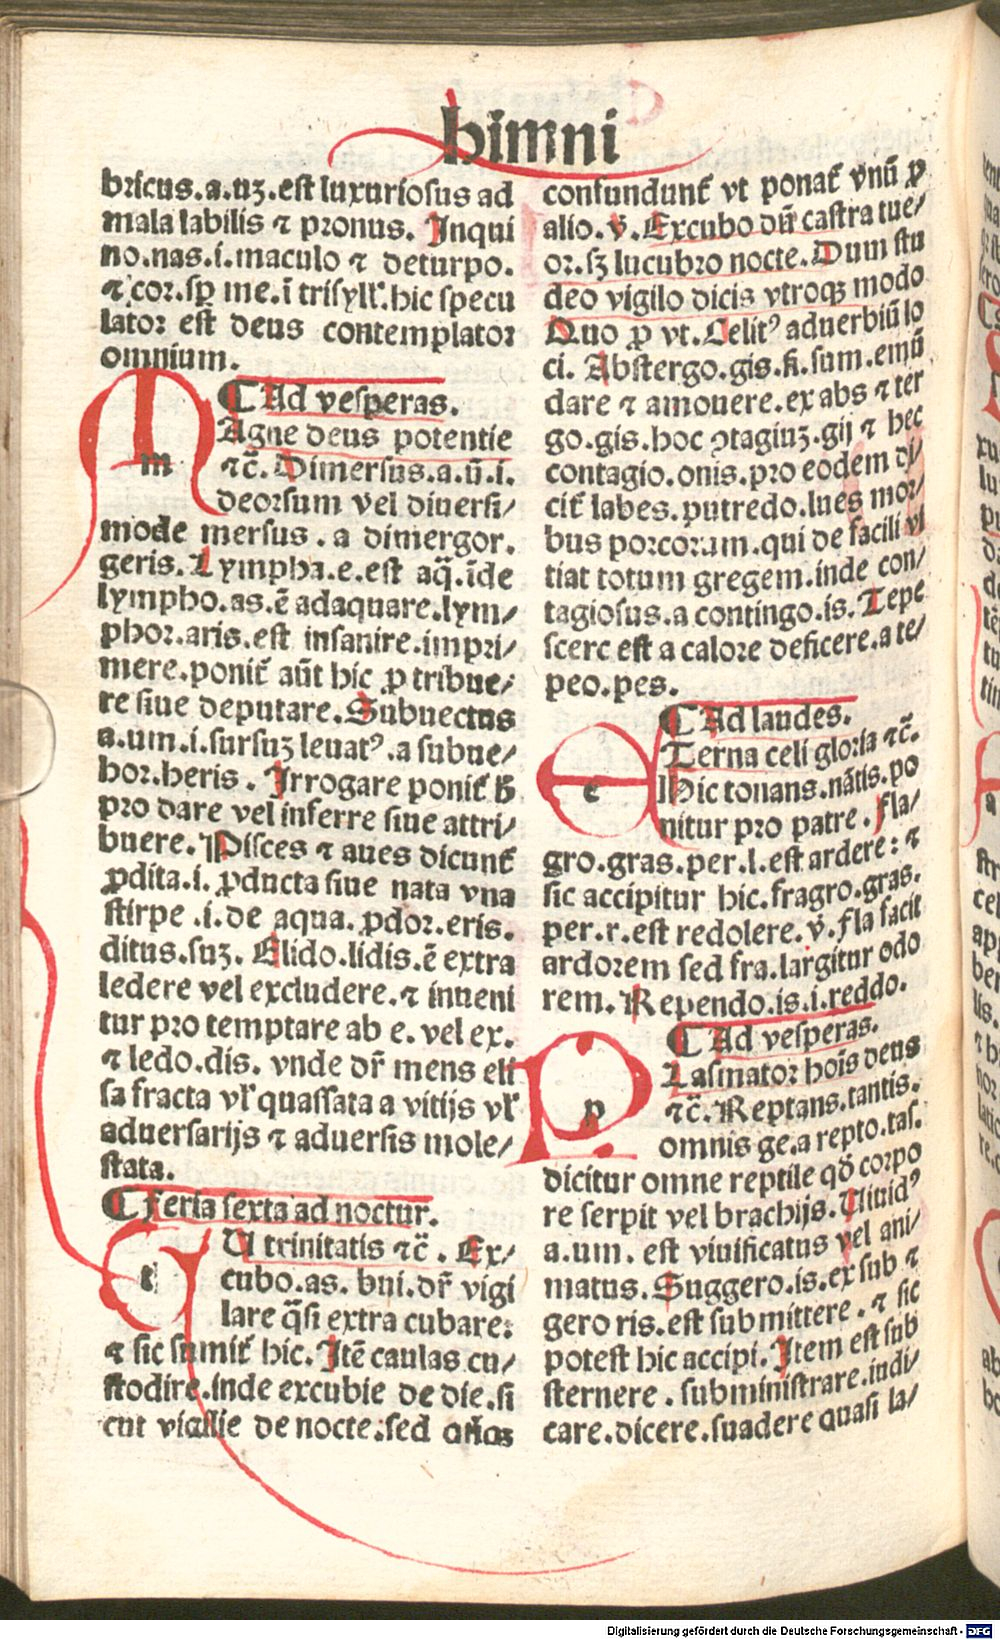 himni
bricus.a.uʒ.est luxuriosus ad
mala labilis ⁊ pronus. Inqui
no.nas.i.maculo ⁊ deturpo.
⁊ cor.sꝑ me.ī trisyll'.hic specu
lator est deus contemplator
omnium.
¶ Ad vesperas.
m Agne deus potentie
⁊c̄. Dimersus.a.ū.i.
deorsum vel diuersi/
mode mersus.a dimergor.
geris. Lympha.e.est aq̄.īde
lympho.as.ē adaquare.lym/
phor.aris.est insanire.impri/
mere.ponit᷑ aūt hic ꝓ tribue/
re siue deputare. Subuectus
a.um.i.sursuʒ leuatꝰ.a subue/
hor.heris. Irrogare ponit᷑ ħ
pro dare vel inferre siue attri/
buere. Pisces ⁊ aues dicunt᷑
ꝓdita.i.ꝓducta siue nata vna
stirpe.i.de aqua.ꝓdor.eris.
ditus.suʒ. Elido.lidis.ē extra
ledere vel excludere.⁊ inueni
tur pro temptare ab e.vel ex.
⁊ ledo.dis. vnde dr̄ mens eli
sa fracta vl' quassata a vitijs vl'
aduersarijs ⁊ aduersis mole/
stata.
¶ Feria sexta ad noctur.
t U trinitatis ⁊c̄. Ex/
cubo.as. bui.dr̄ vigi
lare q̄si extra cubare:
⁊ sic sumit᷑ hic. Itē caulas cu/
stodire.inde excubie de die.si
cut vigilie de nocte:sed
confundunt᷑ vt ponat᷑ vnū ꝓ
alio.v̄. Excubo dū castra tue/
or.sʒ lucubro nocte. Dum stu
deo vigilo dicis vtroqʒ modo
Quo ꝓ vt. Celitꝰ aduerbiū lo
ci. Abstergo.gis.fi.sum.emū
dare ⁊ amouere.ex abs ⁊ ter
go.gis.hoc ꝯtagiuʒ.gij ⁊ hec
contagio.onis.pro eodem di/
cit᷑ labes.putredo.lues mor/
bus porcorum.qui de facili vi
tiat totum gregem.inde con/
tagiosus.a contingo.is. Tepe
scere est a calore deficere.a te/
peo.pes.
¶ Ad laudes.
e Terna celi gloria ⁊c̄.
Hic tonans.nātis.po
nitur pro patre. Fla/
gro.gras.per.l.est ardere: ⁊
sic accipitur hic.fragro.gras.
per.r.est redolere.v̄.fla facit
ardorem sed fra.largitur odo
rem. Rependo.is.i.reddo.
¶ Ad vesperas.
p Lasmator hoīs deus
⁊c̄. Reptans.tantis.
omnis ge.a repto.tas.
dicitur omne reptile qď corpo
re serpit vel brachijs. Uiuidꝰ
a.um. est viuificatus vel ani/
matus. Suggero.is.ex sub ⁊
gero ris.est submittere. ⁊ sic
potest hic accipi. Item est sub
sternere.subministrare.indi/
care.dicere.suadere quasi la/
Digitalisierung gefördert durch die Deutsche Forschungsgemeinschaft - DFG